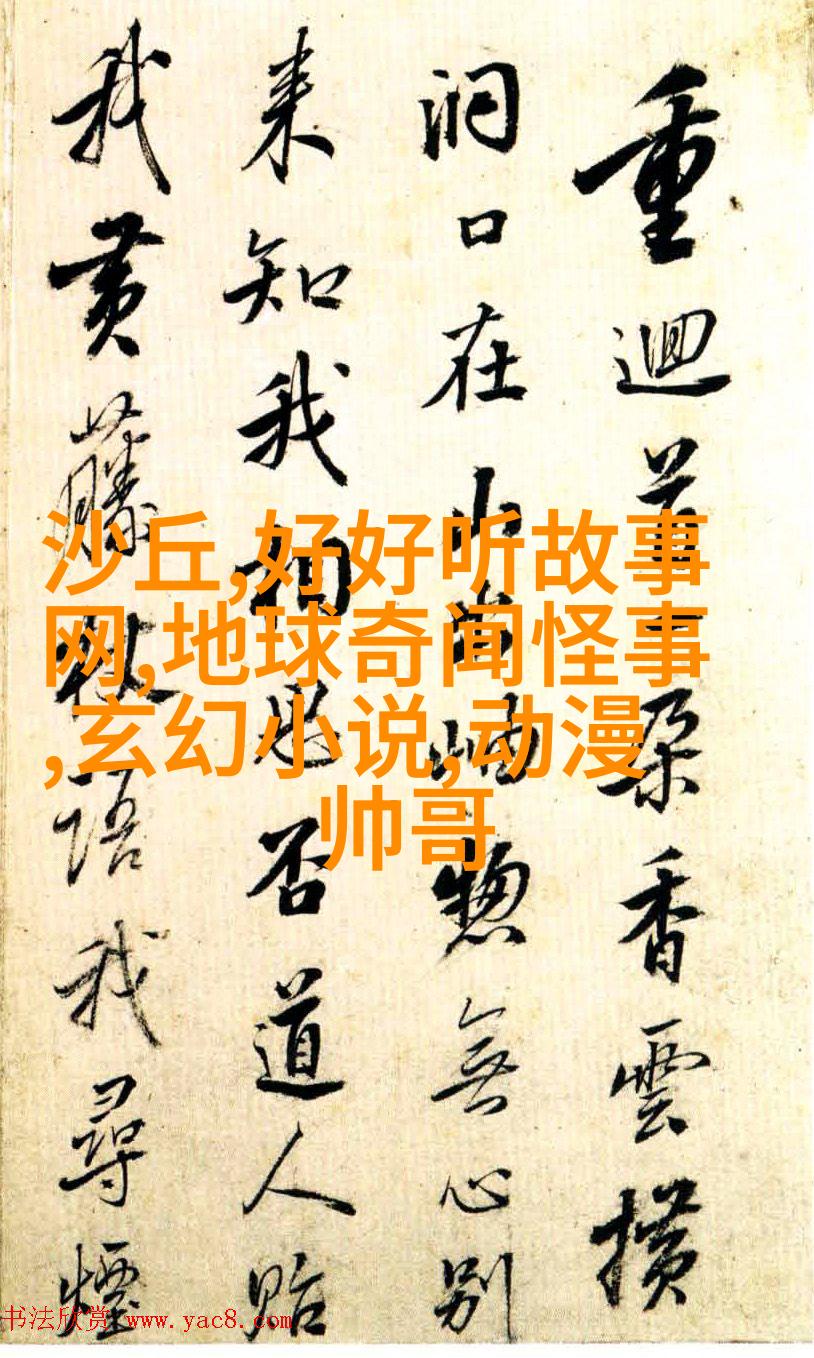 重迴首一朶香雲横
洞口在岫惣無心别
来知我相思否道人貽
我黄藤杖語我尋煙
沙丘,好好听故事
网,地球奇闻怪事
,玄幻小说,动漫
帅哥
书法欣赏 www.yac8.com